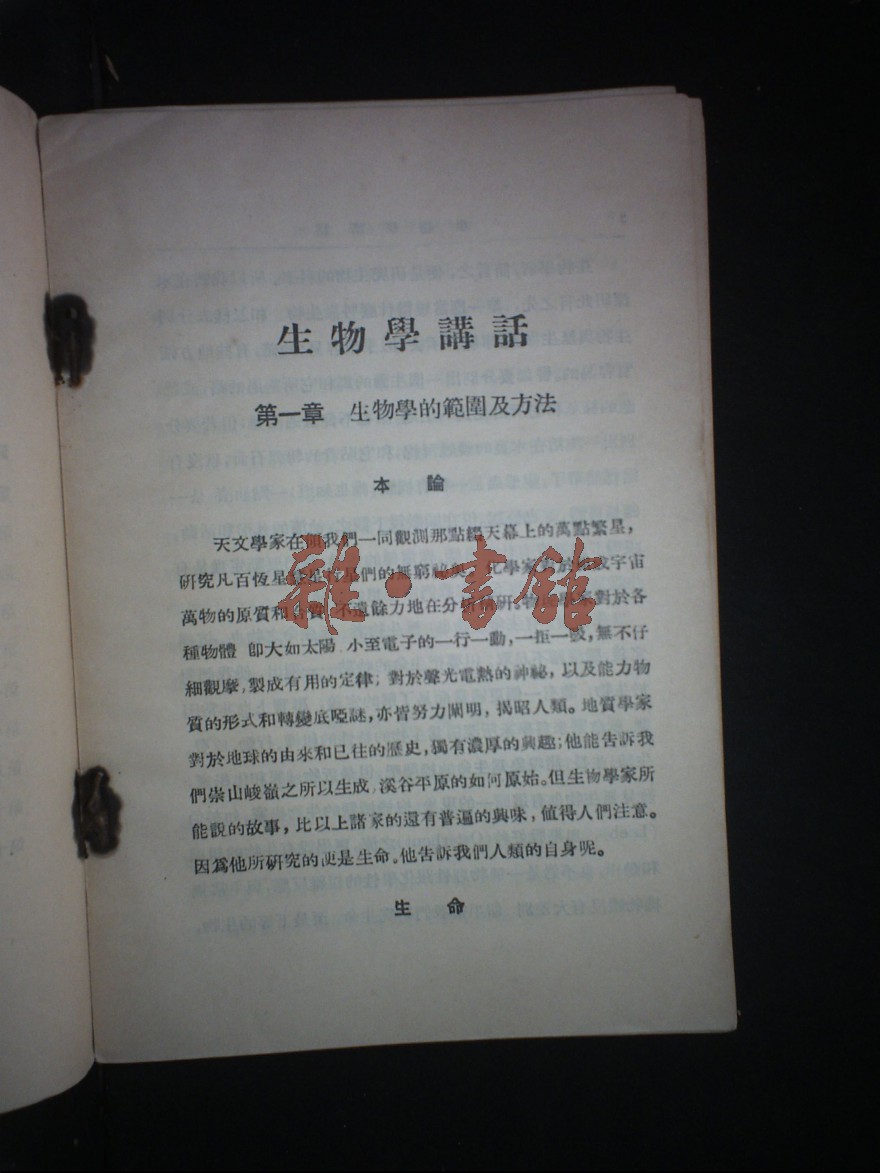 生物學講話
第一章 生物學的範圍及方法
本論
天文學家在領我們一同觀測那點綴天幕上的萬點繁星，
研究凡百恆星 們的無窮 化學家 於 宇宙
萬物的原質和 質，不遺餘力地在分析 研，物 學家對於各
種物體 卽大如太陽 小至電子的一行一動，一拒一 ，無不仔
細觀摩，製成有用的定律；對於聲光電熱的神祕，以及能力物
質的形式和轉變底啞謎，亦皆努力闡明，揭昭人類。地質學家
對於地球的由來和已往的歷史，獨有濃厚的興趣；他能告訴我
們崇山峻嶺之所以生成，溪谷平原的如何原始。但生物學家所
能說的故事，比以上諸家的還有普遍的興味，値得人們注意。
因爲他所研究的便是生命。他告訴我們人類的自身呢。
生命
雜·書館